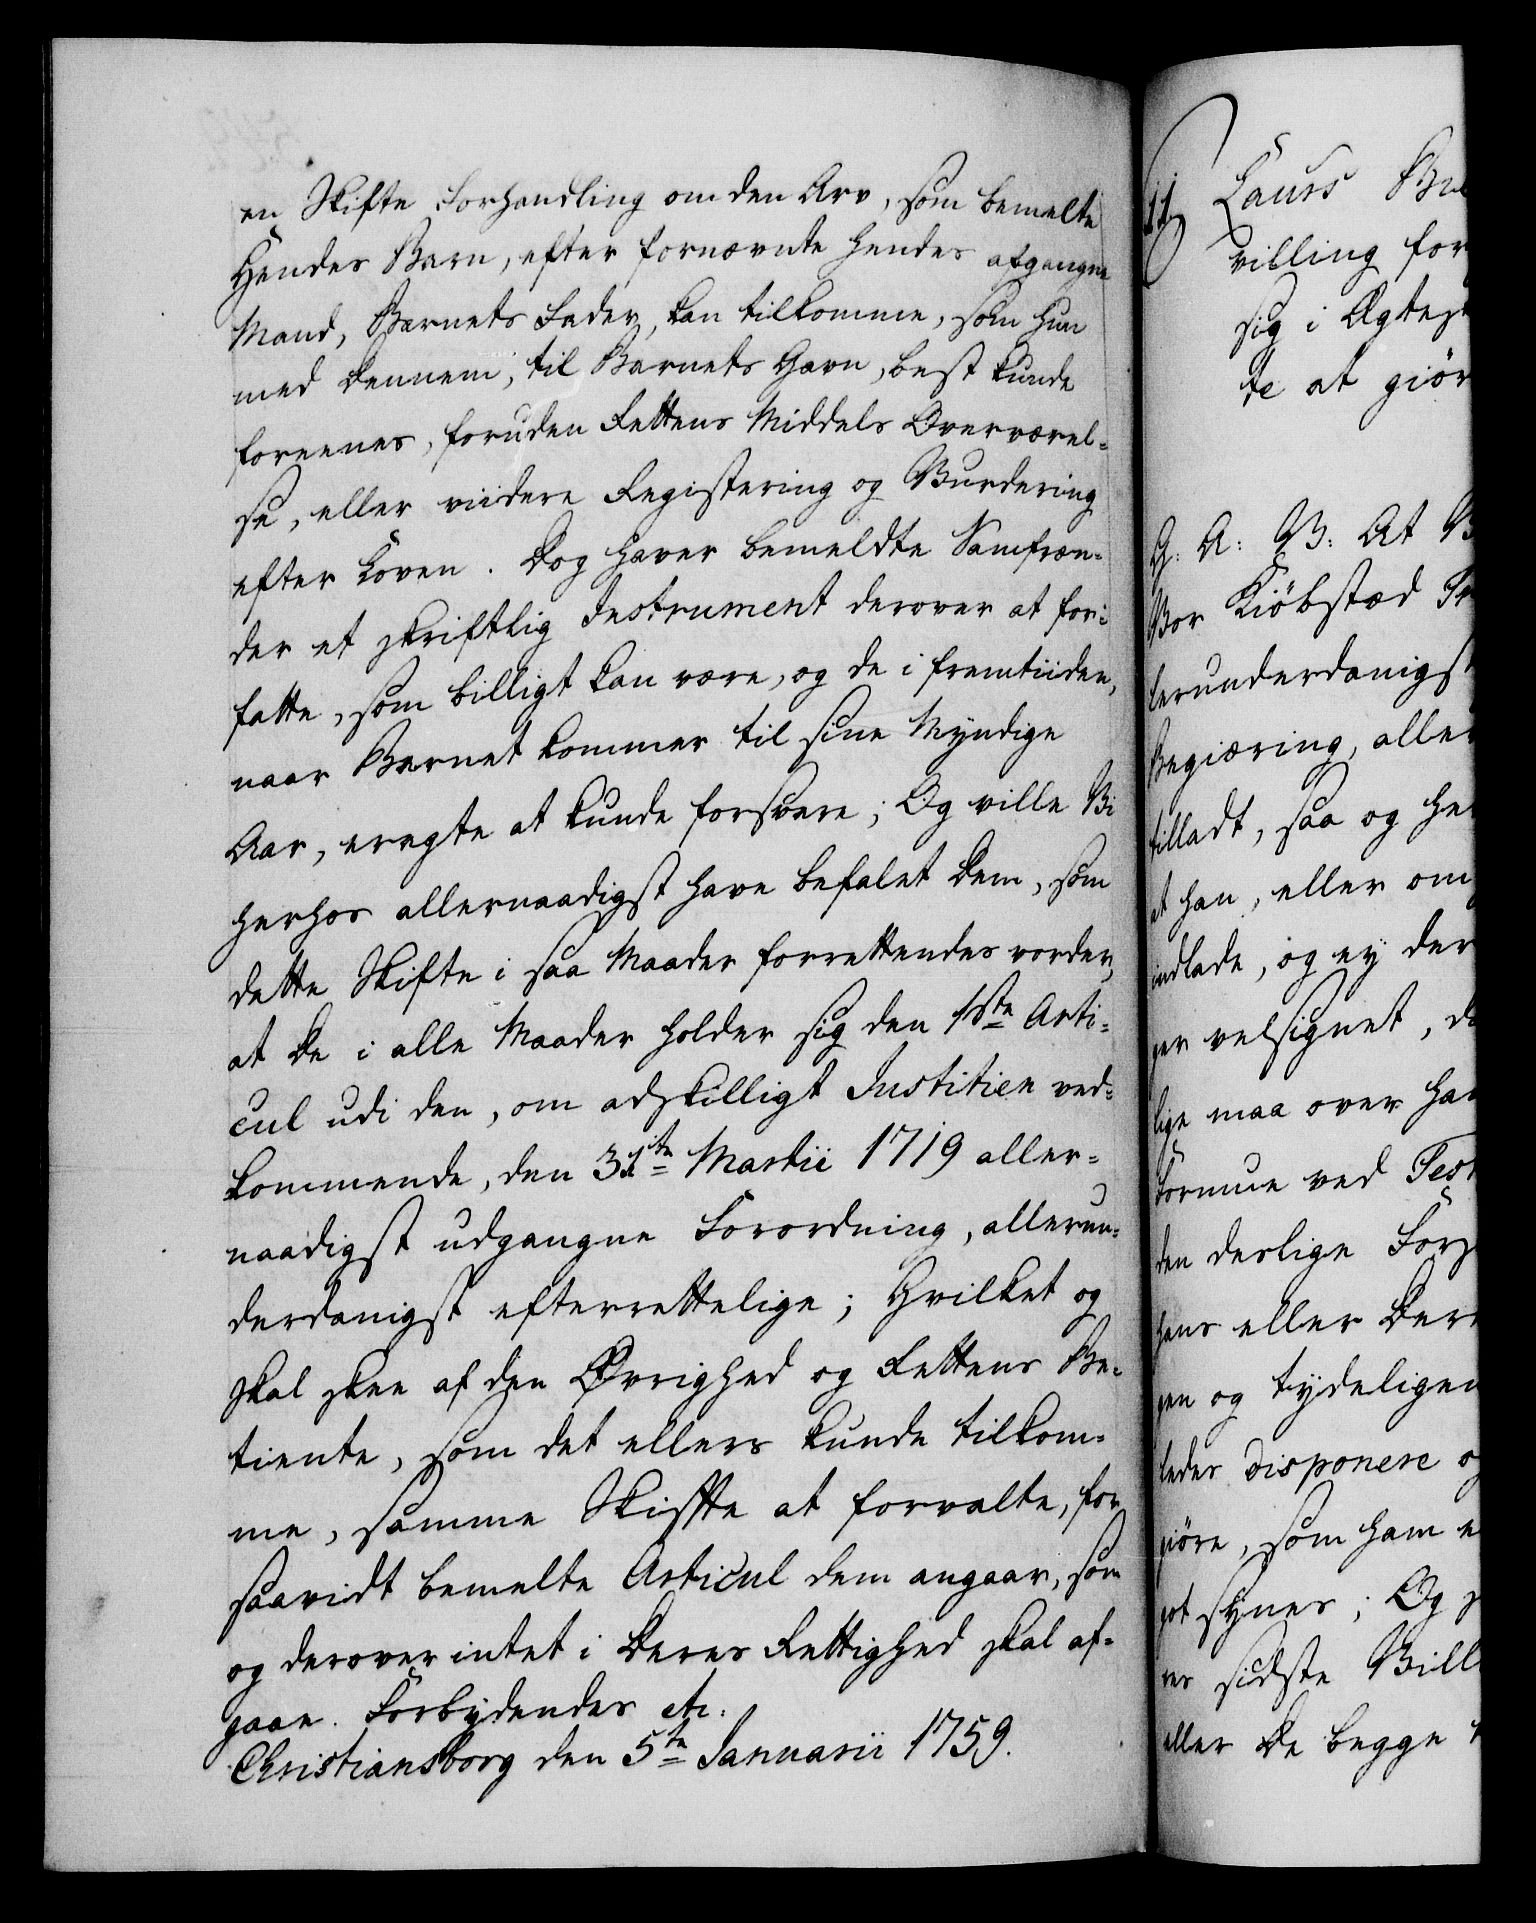 en Skifte Forhandling om den Arv, som bemelte
Hendes Barn, efter fornævnte hendes afgangne
Mand, Barnets Fader, kan tilkomme, som hun
med dennem, til Barnets Gavn, best kunde
foreenes, foruden Rettens Middels Overværel-
se, eller viidere Registering og Vurdering
efter Loven. Dog haver bemeldte Samfræn-
der et skriftlig Instrument derover at for-
fatte, som billigt kan være, og de i fremtiiden,
naar Barnet kommer til sine Myndige
Aar, eragte at kunde forsvare; Og ville Vi
herhos allernaadigst have befalet dem, som
dette Skifte i saa Maader forrettendes vorder,
at de i alle Maader holder sig den 1ste Arti-
cul udi den, om adskilligt Justitien ved-
kommende, den 31te Martii 1719 aller-
naadigst udgangne Forordning, allerun-
derdanigst efterrettelige; Hvilket og
skal skee af den Øvrighed og Rettens Be-
tiente, som det ellers kunde tilkom-
me, samme Skifte at forvalte, for
saavidt bemelte Articul dem angaar, som
og derover intet i deres Rettighed skal af-
gaae. Forbydendes etc.
Christiansborg den 5te Januarii 1759.
11
Laurs
villing for
sig i Ægtes
te at giør
G: A: V: At V
Vor Kiøbstæd
lerunderdanigst
Begiæring, aller
tilladt, saa og he
at han, eller om
indlade, og ey der
ger velsignet, d
lige maa over ha
Formue ved Test
den deslige Fors
hans eller der
gen og tydeligen
ledes disponere o
giøre, som ham e
got synes; Og s
res sidste Vill
eller de begge